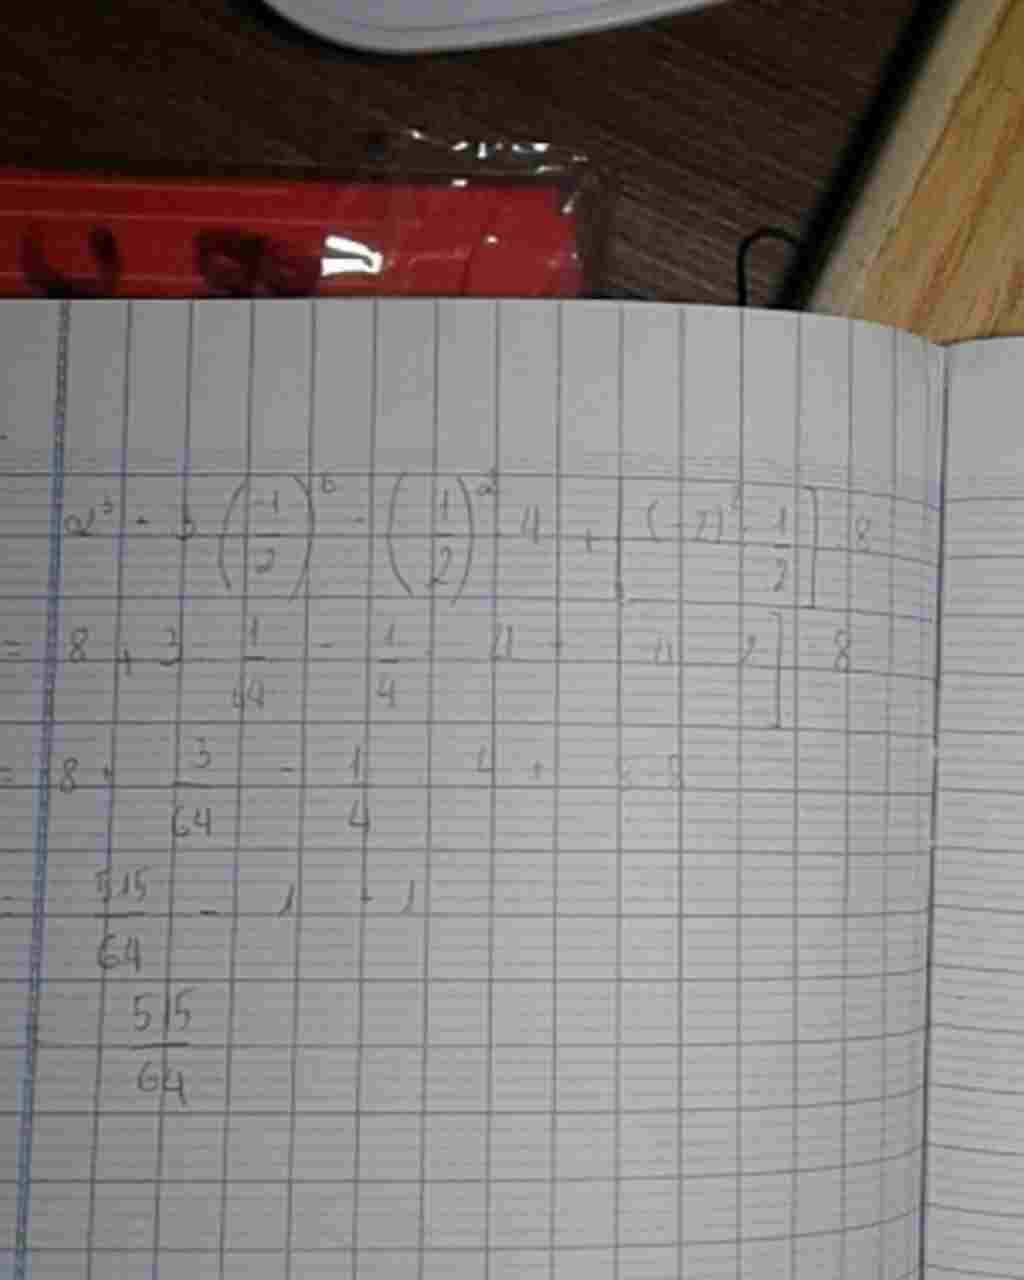 2³ + 3 (-1/2)⁶ - (1/2)² 4 + [(-2)² : 1/2] : 8
= 8 + 3 1/64 - 1/4 4 + 4 2] 8
= 8 + 3/64 - 1/4 4 + 8 8
= 515/64 - 1 + 1
515/64